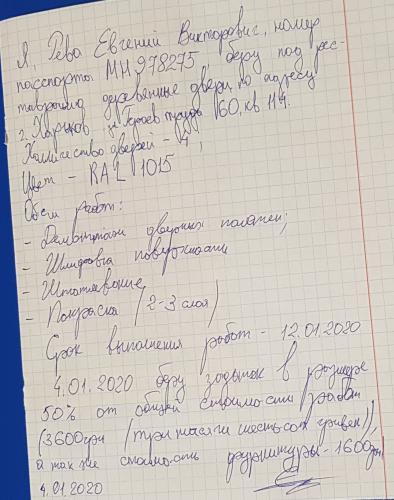 Я, Рева Евгений Викторович, номер
паспорта МН 978275, беру под рес-
таврацию деревянные двери по адресу
г. Харьков ул. Героев труда 60, кв 114.
Количество дверей - 4,
Цвет - RAL 1015
Обьем работ:
- Демонтаж дверных полотен;
- Шлифовка поверхности
- Шпатлевание,
- Покраска (2-3 слоя)
Срок выполнения работ - 12.01.2020
4.01.2020 беру задаток в размере
50% от общей стоимости работ
(3600грн (три тысячи шестьсот гривен)),
а также стоимость фурнитуры - 1600грн
4.01.2020